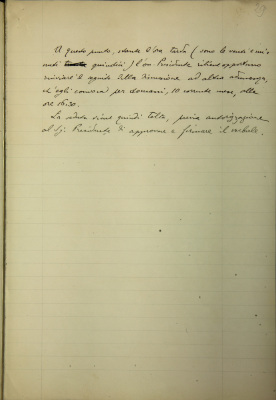 A questo punto, stante l'ora tarda (sono le venti e mi-
nuti quindici) l'on. Presidente ritiene opportuno
rinviare il seguito della discussione ad altra adunanza,
ch'egli convoca per domani, 10 corrente mese, alle
ore 16.30.
La seduta viene quindi tolta, previa autorizzazione
al Sig. Presidente di approvare e firmare il verbale.